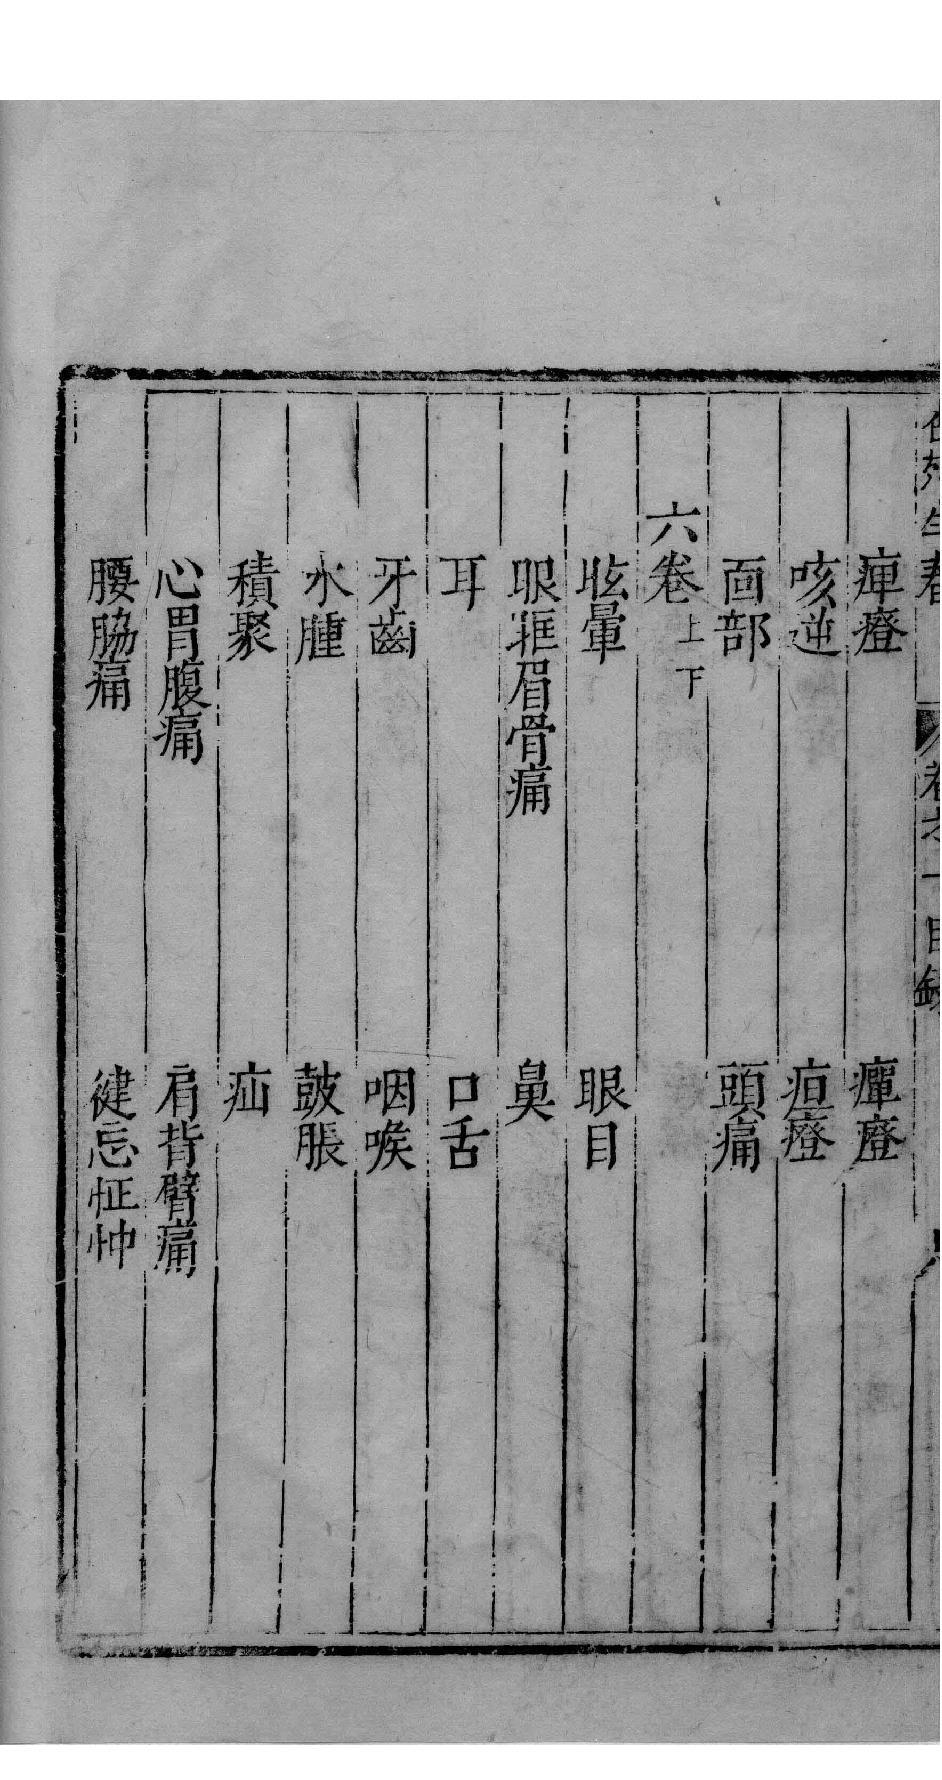 卷之一目錄
痺證　癉證
咳逆　疸證
面部　頭痛
六卷上下
眩暈　眼目
眼眶眉骨痛　鼻
耳　口舌
牙齒　咽喉
水腫　鼓脹
積聚　疝
心胃腹痛　肩背臂痛
腰脇痛　徤忘怔忡